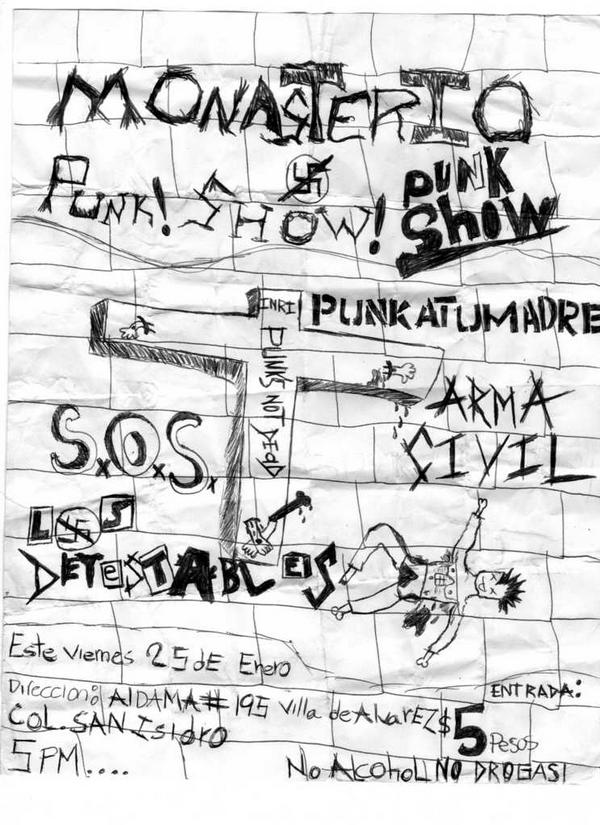 MONASTERIO
PUNK! SHOW!
PUNK
SHOW
INRI
PUNKATUMADRE
PUNKS NOT DEAD
ARMA
CIVIL
S.O.S.
LOS
DETESTABLEIS
Este Viernes 25 dE Enero
Direccion: AlDAMA# 195 Villa de AlvarEZ
Col. SAN Isidro
5 PM....
ENTRADA:
$5 Pesos
No Alcohol NO DROGAS!